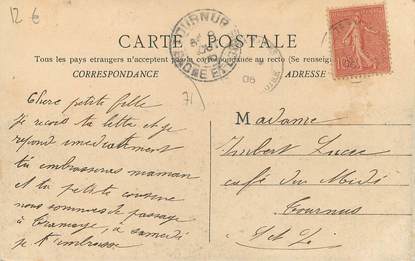 12 €
CARTE POSTALE
Tous les pays étrangers n'acceptent pas la correspondance au recto (Se renseign
CORRESPONDANCE
ADRESSE
TOURNUS
SAONE ET
08
71
Chere petite fille
Je recois ta lettre et je
repond imediatement
tu embrasseras maman
et ta petite cousine
nous sommes de passage
à Tramaye, a samedi
je t'embrasse
Madame
Imbert Lucee
café du Midi
Tournus
S et L